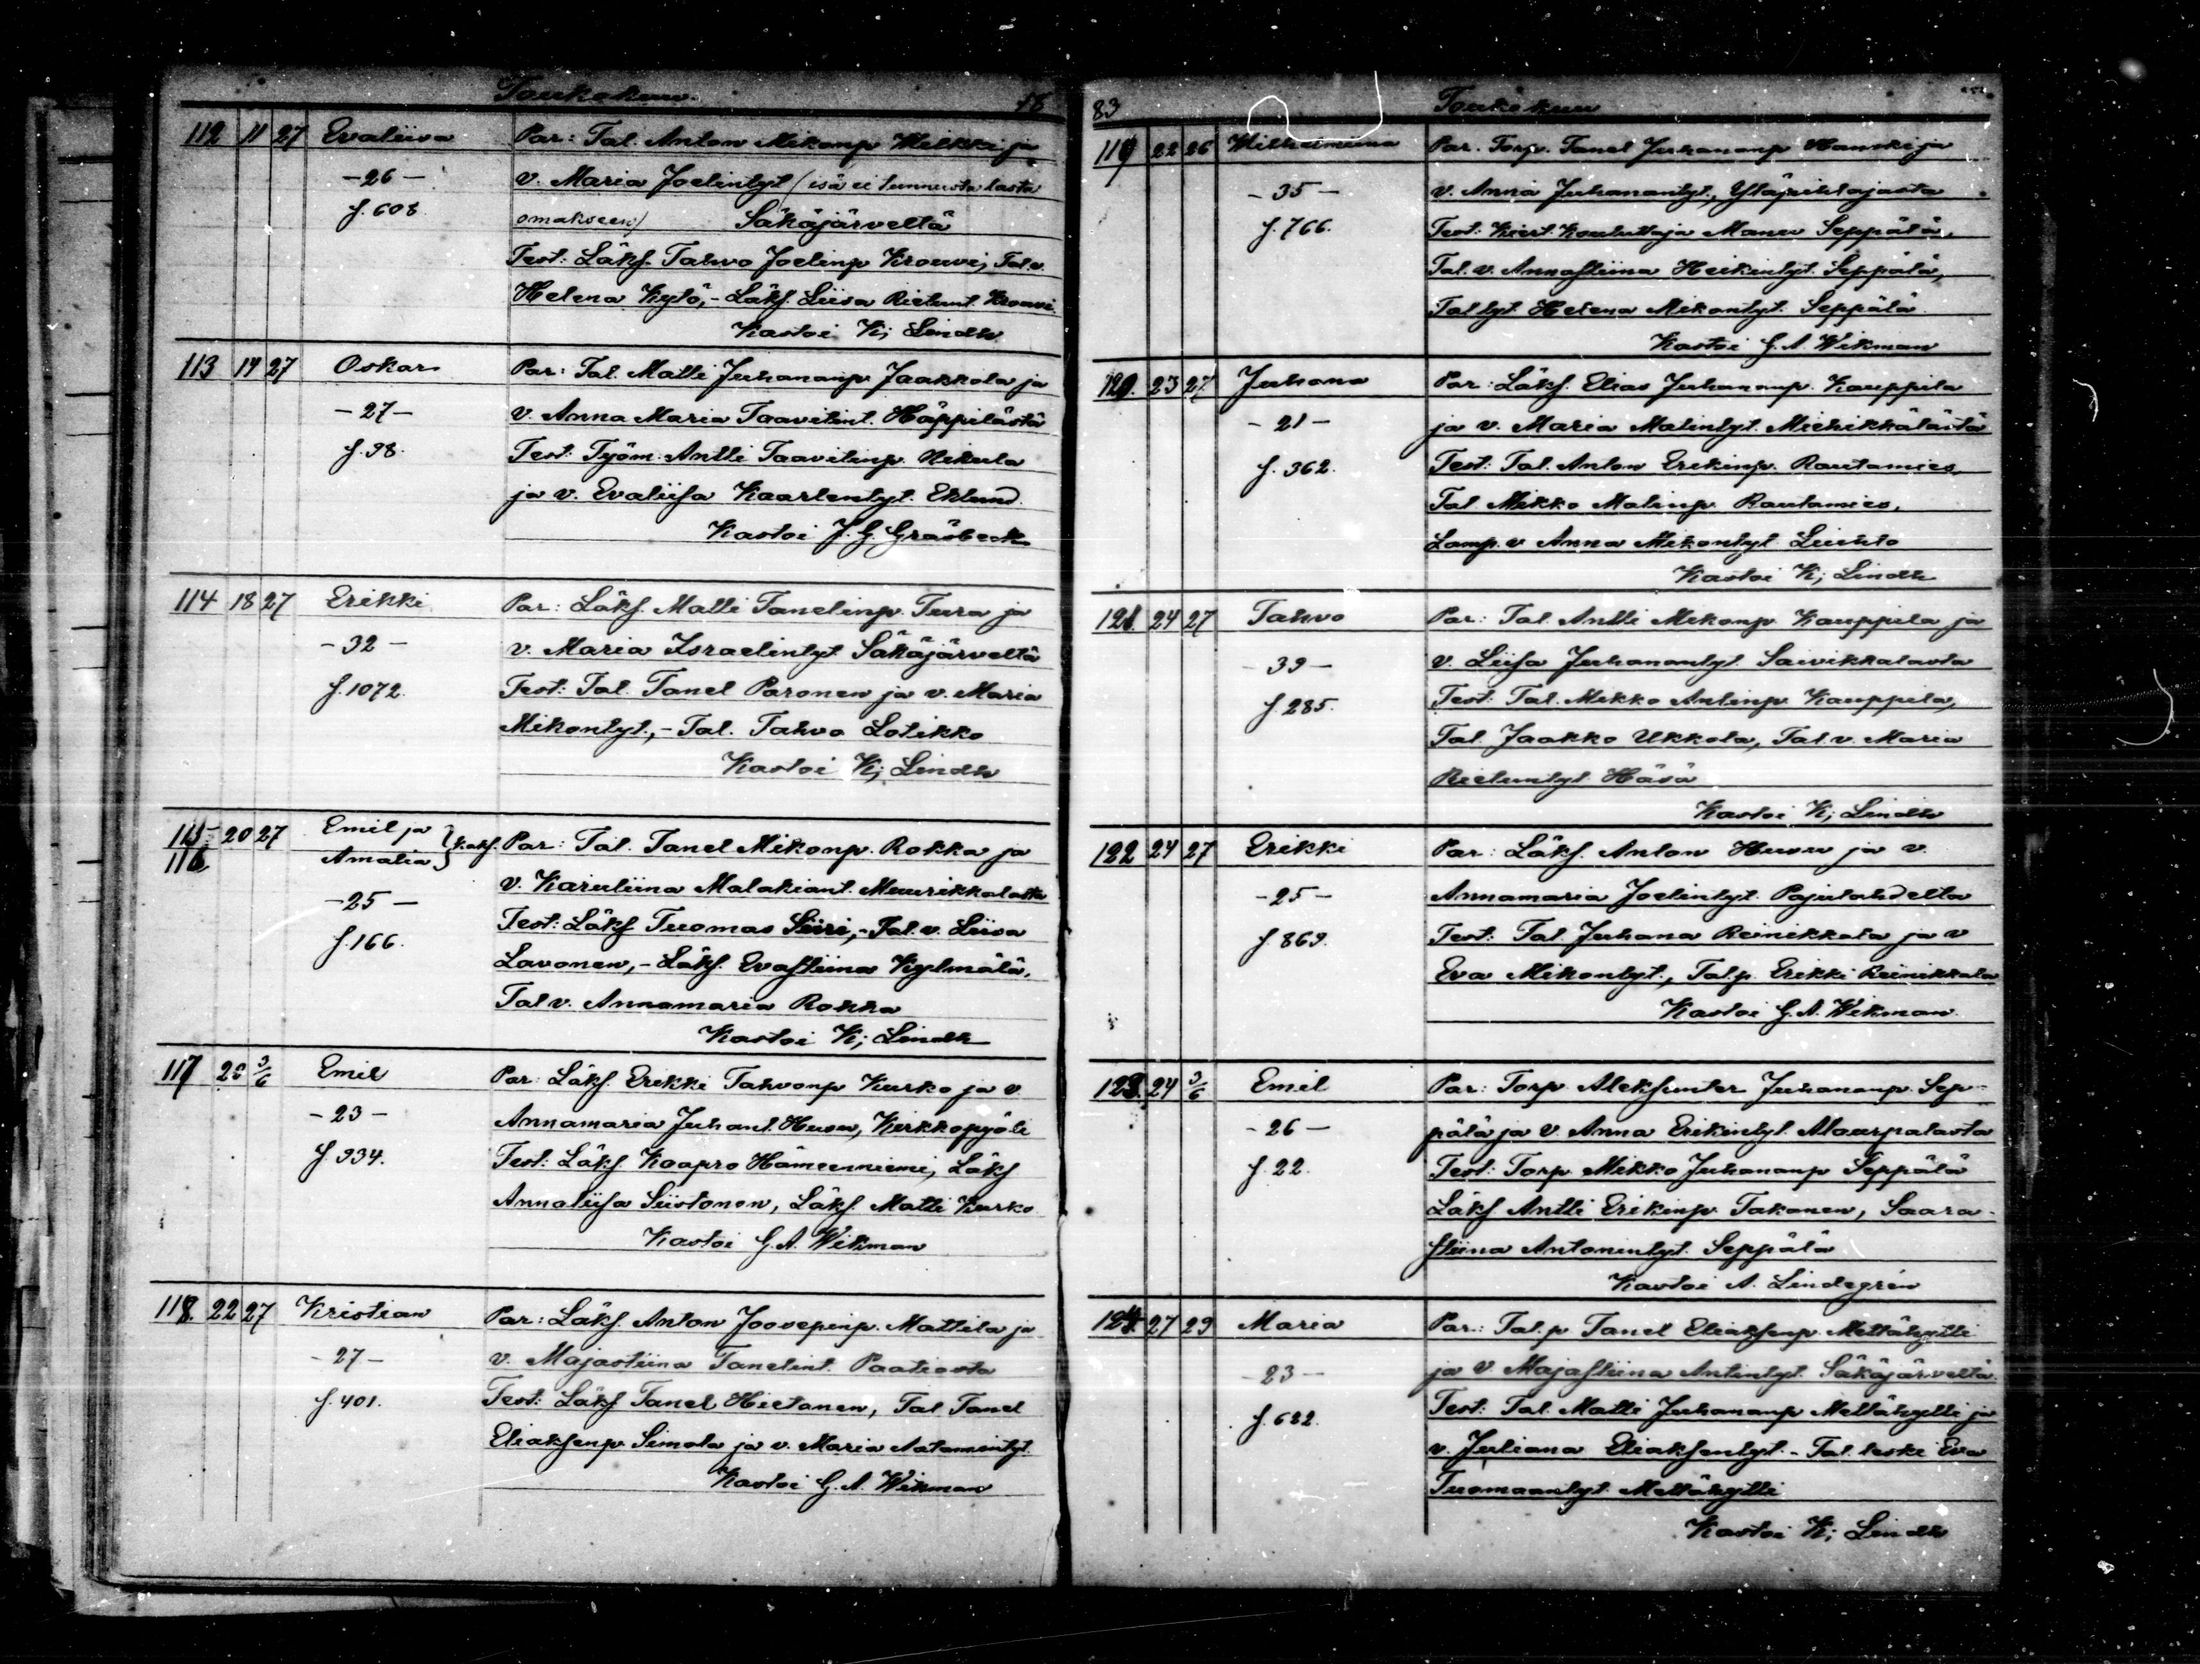 Toukokuu. 18
112 11 27 Evaliisa Par: Tal. Anton Mikonp. Meikki ja
-26- v. Maria Joelintyt (isä ei tunnusta lasta
f. 608. omakseen) Säkäjärveltä
Test: Läks. Tahvo Joelinp Krouvi, Tal.v.
Helena Kylö,- Läks. Liisa Rietunt. Krouvi.
Kastoi K; Lindh
113 14 27 Oskar Par: Tal. Matti Juhananp. Jaakkola ja
-27- v. Anna Maria Taavitint. Häppilästä
f. 98. Test: Työm. Antti Taavitinp. Nikula
ja v. Evaliisa Kaarlentyt. Eklund.
Kastoi J. G. Gräsbeck
114 18 27 Erikki Par: Läks. Matti Tanelinp. Tura ja
-32- v. Maria Israelintyt Säkäjärveltä
f. 1072. Test: Tal. Tanel Paronen ja v. Maria
Mikontyt,- Tal. Tahvo Lotikko
Kastoi K; Lindh
115- 20 27 Emil ja } kaks. Par: Tal. Tanel Mikonp. Rokka ja
116 Amalia
v. Karuliina Malakiant. Muurikkalasta
-25- Test: Läks Tuomas Siiri,- Tal.v. Liisa
f. 166. Lavonen,- Läks. Evastiina Kylmälä,
Tal v. Annamaria Rokka
Kastoi K; Lindh
117 20 3/6 Emil Par: Läks. Erikki Tahvonp Kurko ja v
-23- Annamaria Juhant. Husu, Kirkkopyöli
f 934. Test: Läks. Kaapro Hämeenniemi, Läks
Annaliisa Siistonen, Läks. Matti Kurko
Kastoi G. A. Wikman
118. 22 27 Kristian Par: Läks. Anton Joosepinp. Mattila ja
-27- v. Majastiina Tanelint. Paatiosta
f. 401. Test: Läks Tanel Hietanen, Tal Tanel
Eliaksenp Simola ja v. Maria Aatamintyt.
Kastoi G. A. Wikman
83 Toukokuu
119 22 26 Wilhelmiina Par. Torp. Tanel Juhananp Hanski ja
-35- v. Anna Juhanantyt., Yläpihlajasta
f. 766. Test: Kiert. Kouluttaja Manu Seppälä,
Tal. v. Annastiina Heikintyt. Seppälä,
Tal tyt. Helena Mikontyt. Seppälä
Kastoi G. A. Wikman
120. 23 27 Juhana Par: Läks. Elias Juhananp. Kauppila
-21- ja v. Maria Matintyt. Miehikkälästä
f. 362. Test: Tal. Anton Erikinp. Rautamies,
Tal Mikko Matinp. Rautamies,
Lamp. v Anna Mikontyt Luukko
Kastoi K; Lindh
121. 24 27 Tahvo Par: Tal. Antti Mikonp. Kauppila ja
39- v. Liisa Juhanantyt. Saivikkalasta
f 285. Test: Tal. Mikko Antinp. Kauppila,
Tal. Jaakko Ukkola, Tal. v. Maria
Rietuntyt Häsä
Kastoi K; Lindh
122 24 27 Erikki Par: Läks. Anton Husu ja v.
-25- Annamaria Joelintyt. Pajulahdelta
f 869. Test: Tal. Juhana Reinikkala ja v
Eva Mikontyt., Tal.p. Erikki Reinikkala
Kastoi G. A. Wikman.
123. 24 3/6 Emil Par: Torp Aleksanter Juhananp. Sep-
-26- pälä ja v. Anna Erikintyt. Alaurpalasta
f. 22. Test: Torp. Mikko Juhananp Seppälä
Läks Antti Erikinp. Takanen, Saara-
stiina Antonintyt. Seppälä
Kastoi A. Lindegrén
124. 27 29 Maria Par: Tal. p Tanel Eliaksenp. Mettäkylli
23- ja v. Majastiina Antintyt. Säkäjärveltä
f. 622. Test: Tal. Matti Juhananp Mettäkylli ja
v. Juliana Eliaksentyt.- Tal. leski Eva
Tuomaantyt. Mettäkylli
Kastoi K; Lindh